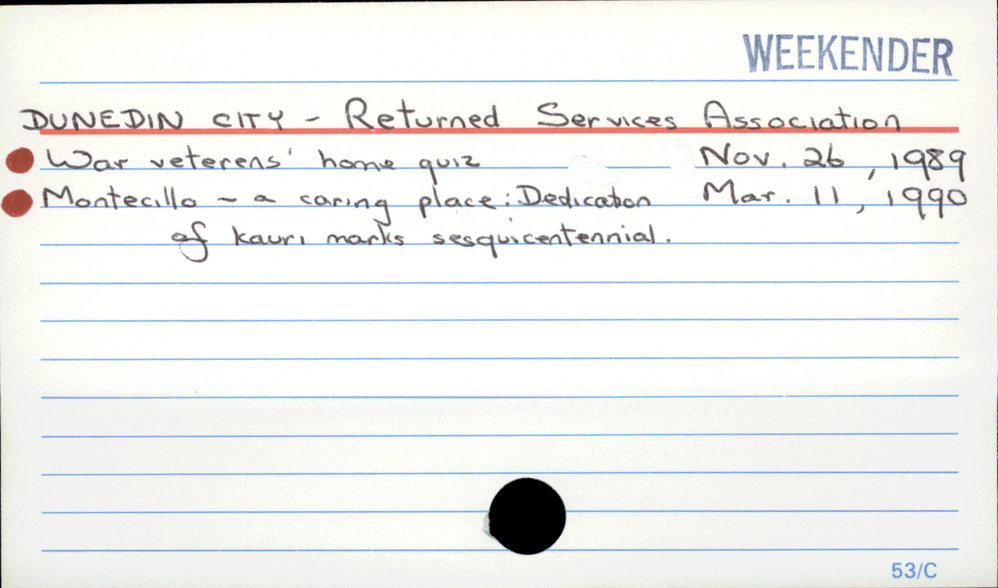 WEEKENDER
DUNEDIN CITY - Returned Services Association
War veterens' home quiz Nov. 26, 1989
Montecillo - a caring place: Dedication Mar. 11, 1990
of kauri marks sesquicentennial.
53/C